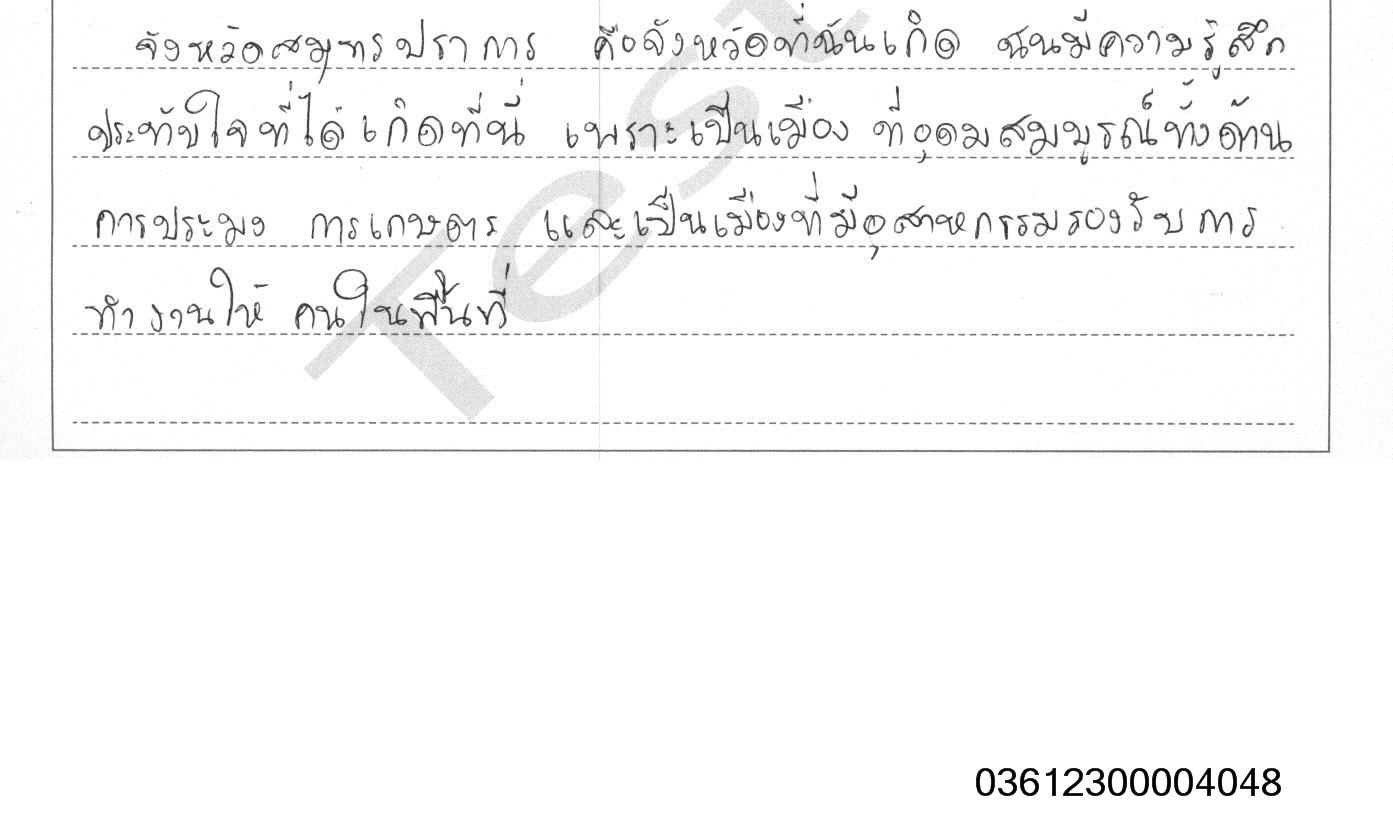 จังหวัดสมุทรปราการ คือจังหวัดที่ฉันเกิด ฉันมีความรู้สึก
ประทับใจที่ได้เกิดที่นี่ เพราะเป็นเมือง ที่อุดมสมบูรณ์ทั้งด้าน
การประมง การเกษตร และเป็นเมืองที่มีอุสาหกรรมรองรับการ
ทำงานให้ คนในพื้นที่
Test
03612300004048